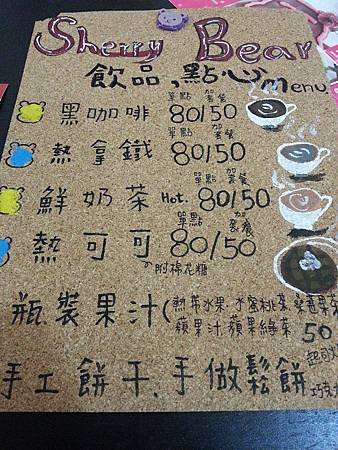 Sherry Bear
飲品,點心 menu
單點 加套餐
黑咖啡 80/50
單點 加套餐
熱拿鐵 80/50
單點 加套餐
鮮奶茶 Hot. 80/50
單點 加套餐
熱可可 80/50
附棉花糖
瓶裝果汁(熱帶水果.水蜜桃茶.桑
蘋果汁.蘋果綠茶 50
手工餅干.手做鬆餅 起司
巧克力